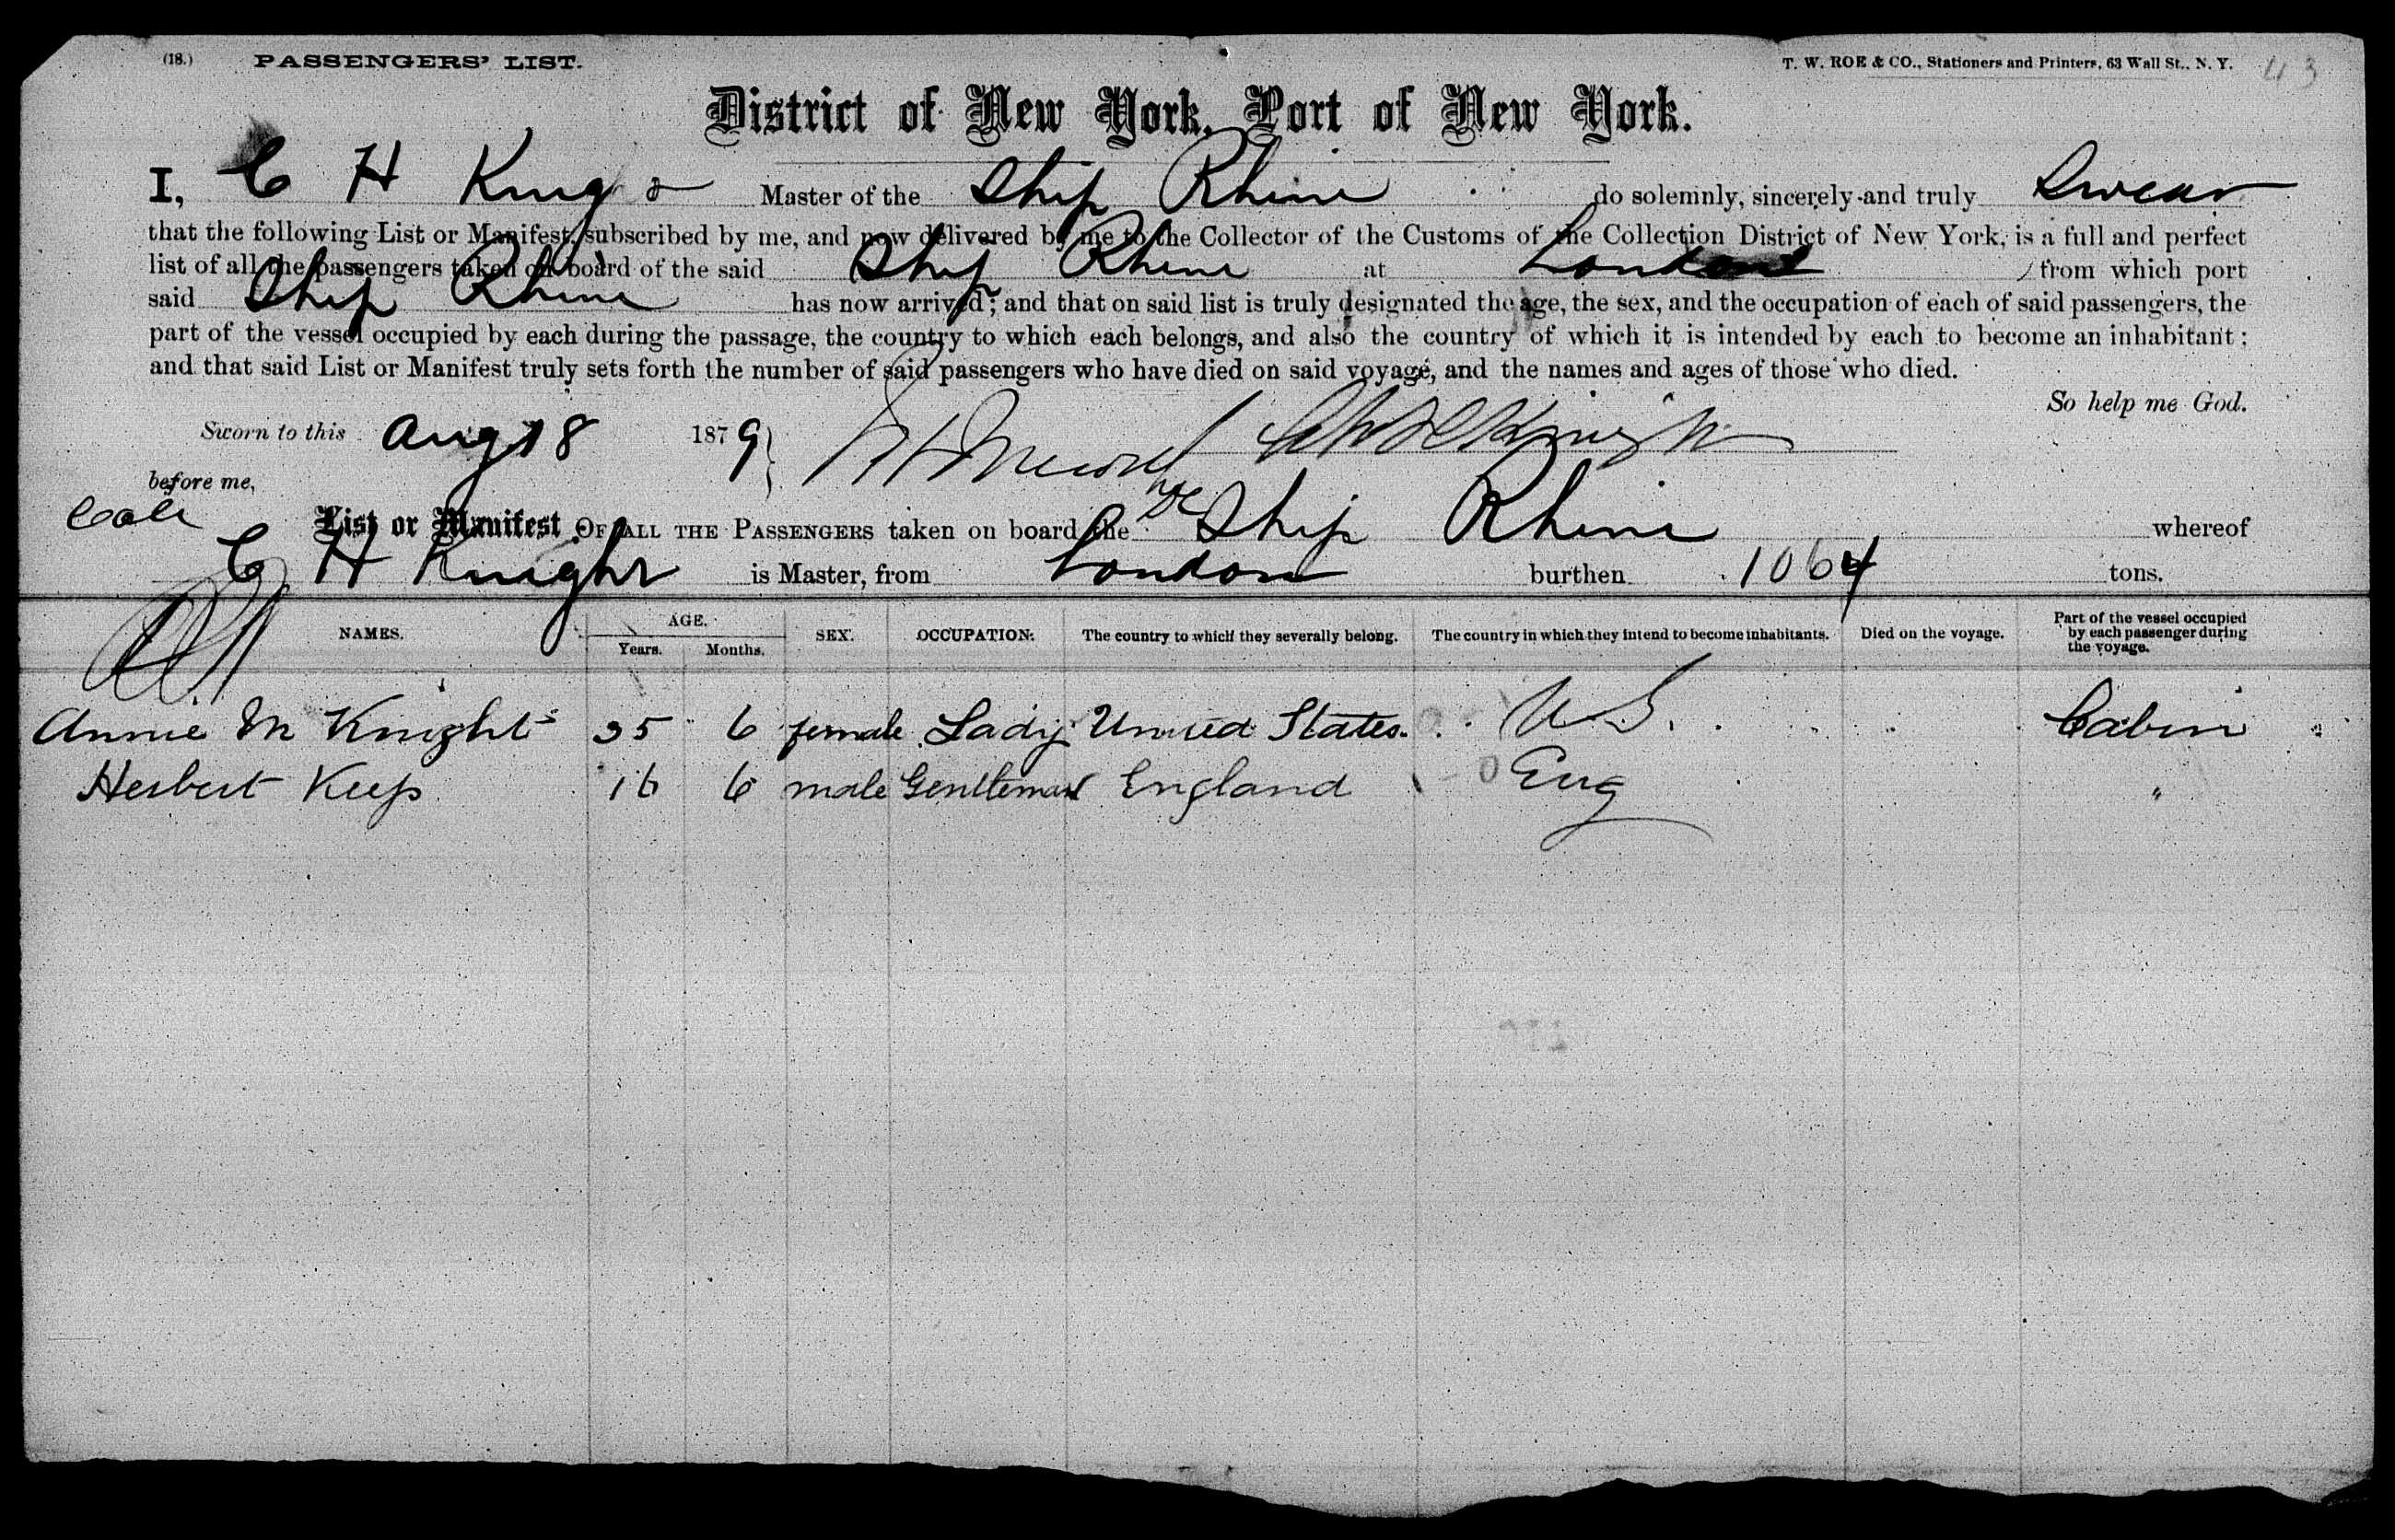 (18.) PASSENGERS' LIST. T. W. ROE & CO., Stationers and Printers, 63 Wall St., N. Y. 43
District of New York, Port of New York.
I, C H Knigh Master of the Ship Rhine do solemnly, sincerely and truly Swear
that the following List or Manifest, subscribed by me, and now delivered by me to the Collector of the Customs of the Collection District of New York, is a full and perfect
list of all the passengers taken on board of the said Ship Rhine at London from which port
said Ship Rhine has now arrived; and that on said list is truly designated the age, the sex, and the occupation of each of said passengers, the
part of the vessel occupied by each during the passage, the country to which each belongs, and also the country of which it is intended by each to become an inhabitant;
and that said List or Manifest truly sets forth the number of said passengers who have died on said voyage, and the names and ages of those who died.
So help me God.
Sworn to this Aug 18 1879 Knight
before me,
List or Manifest OF ALL THE PASSENGERS taken on board the Ship Rhine whereof
C H Knight is Master, from London burthen 1064 tons.
NAMES. AGE. Years. Months. SEX. OCCUPATION. The country to which they severally belong. The country in which they intend to become inhabitants. Died on the voyage. Part of the vessel occupied by each passenger during the voyage.
Annie M Knight 35 6 female Lady United States U S. Cabin
Herbert Keep 16 6 male Gentleman England Eng "